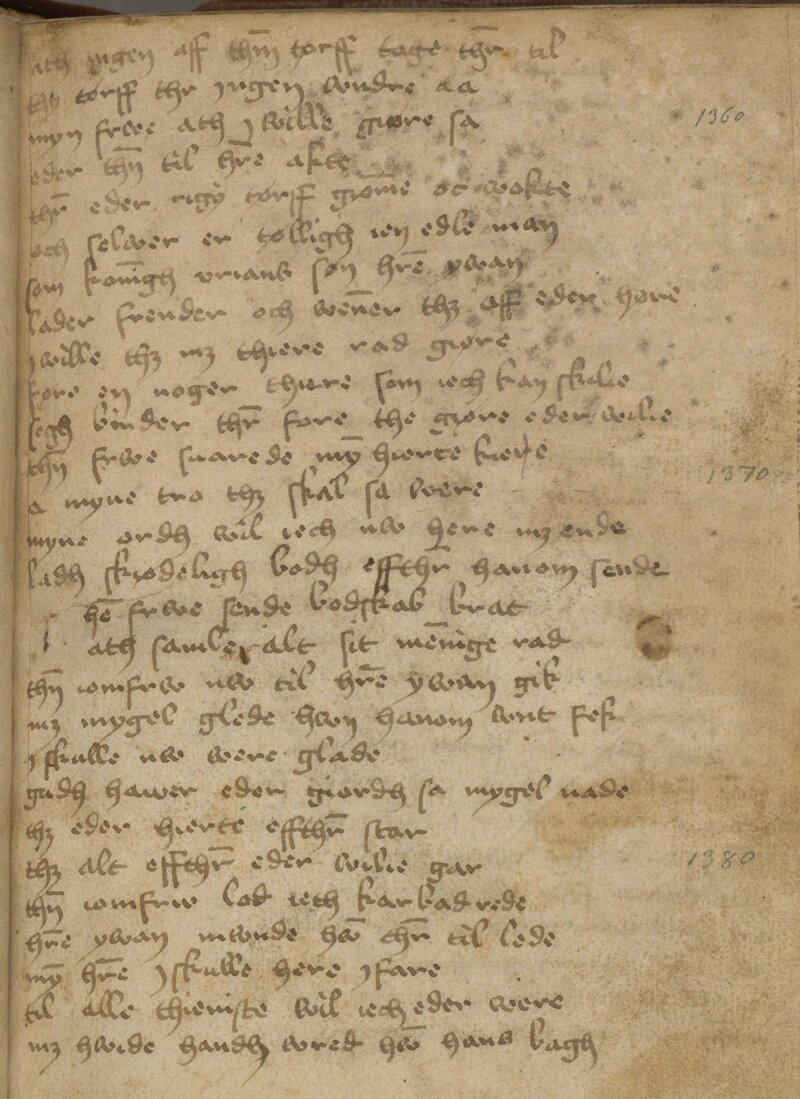 ath yngen aff thm̄ torff tage thr̄ til
thz torff thr jngen vndre aa
myn frwe ath j wille giøre sa 1360
eder thn̄ til hr̄e akte
thr̄ eder rigz torff grøm̄e oc wokte
och selwer er tolligh ien edle man
som koni̅gh vrians søn hr̄e ywan
lader frender och wen̄er thz aff eder høre
j wille thz mz thiere rad giøre
fore en noger thiere som iech kan skilie
segh binder thr̄ fore the giøre eder wilie
thn̄ frwe suarede my̅ hierte kiere
a myne tro thz skal sa were 1370
myne ordh wil iech nw here mz ende
ladh skiødeligh bodh effthr̄ hanom sende
he̅ frwe sende bodskab brat
ath samle alt sit men̄inge rad
thn̄ iomfrw nw til hr̄e ywan gik
mz mygel glede hwn hanom wnt fek
j skulle nw were glade
gudh hawer eder giordh sa mygel nade
thz eder hierte effthr̄ star
thz alt effthr̄ eder wilie gar 1380
thn̄ iomfrw lod ieth karbad rede
hr̄e ywan mwnde hw̅ thr̄ til lede
my̅ hr̄e j skulle here j fare
til alle thieniste wil iech eder were
mz hwide handh wred hw̅ hans bagh